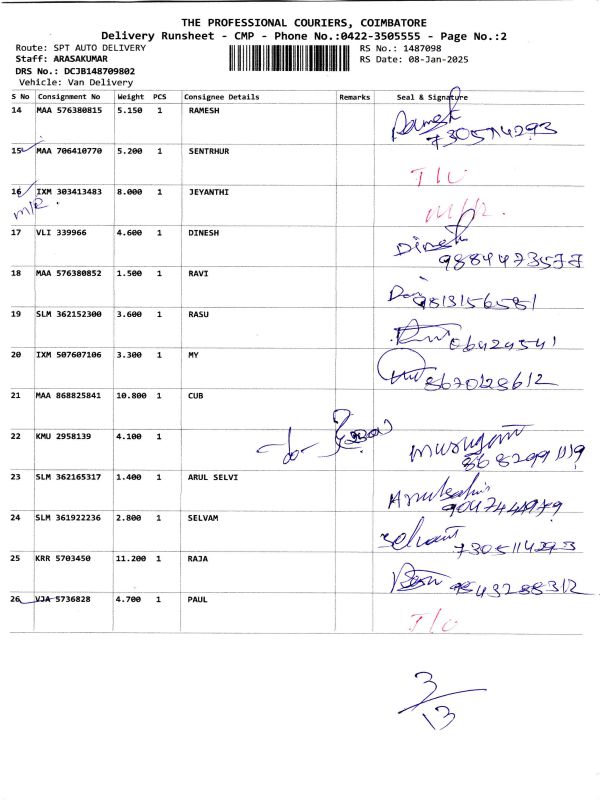 THE PROFESSIONAL COURIERS, COIMBATORE
Delivery Runsheet - CMP - Phone No.:0422-3505555 - Page No.:2
Route: SPT AUTO DELIVERY RS No.: 1487098
Staff: ARASAKUMAR RS Date: 08-Jan-2025
DRS No.: DCJB148709802
Vehicle: Van Delivery
S No Consignment No Weight PCS Consignee Details Remarks Seal & Signature
14 MAA 576380815 5.150 1 RAMESH Ramesh
7305114293
15 MAA 706410770 5.200 1 SENTRHUR T/U
16 IXM 303413483 8.000 1 JEYANTHI
M/R. M/R.
17 VLI 339966 4.600 1 DINESH Dinesh
9884473577
18 MAA 576380852 1.500 1 RAVI
9513156581
19 SLM 362152300 3.600 1 RASU
20 IXM 507607106 3.300 1 MY
8670128612
21 MAA 868825841 10.800 1 CUB
22 KMU 2958139 4.100 1 Murugan
23 SLM 362165317 1.400 1 ARUL SELVI
9047744979
24 SLM 361922236 2.800 1 SELVAM Selvam
7305114293
25 KRR 5703450 11.200 1 RAJA
9543288312
26 VJA 5736828 4.700 1 PAUL T/U
3
13